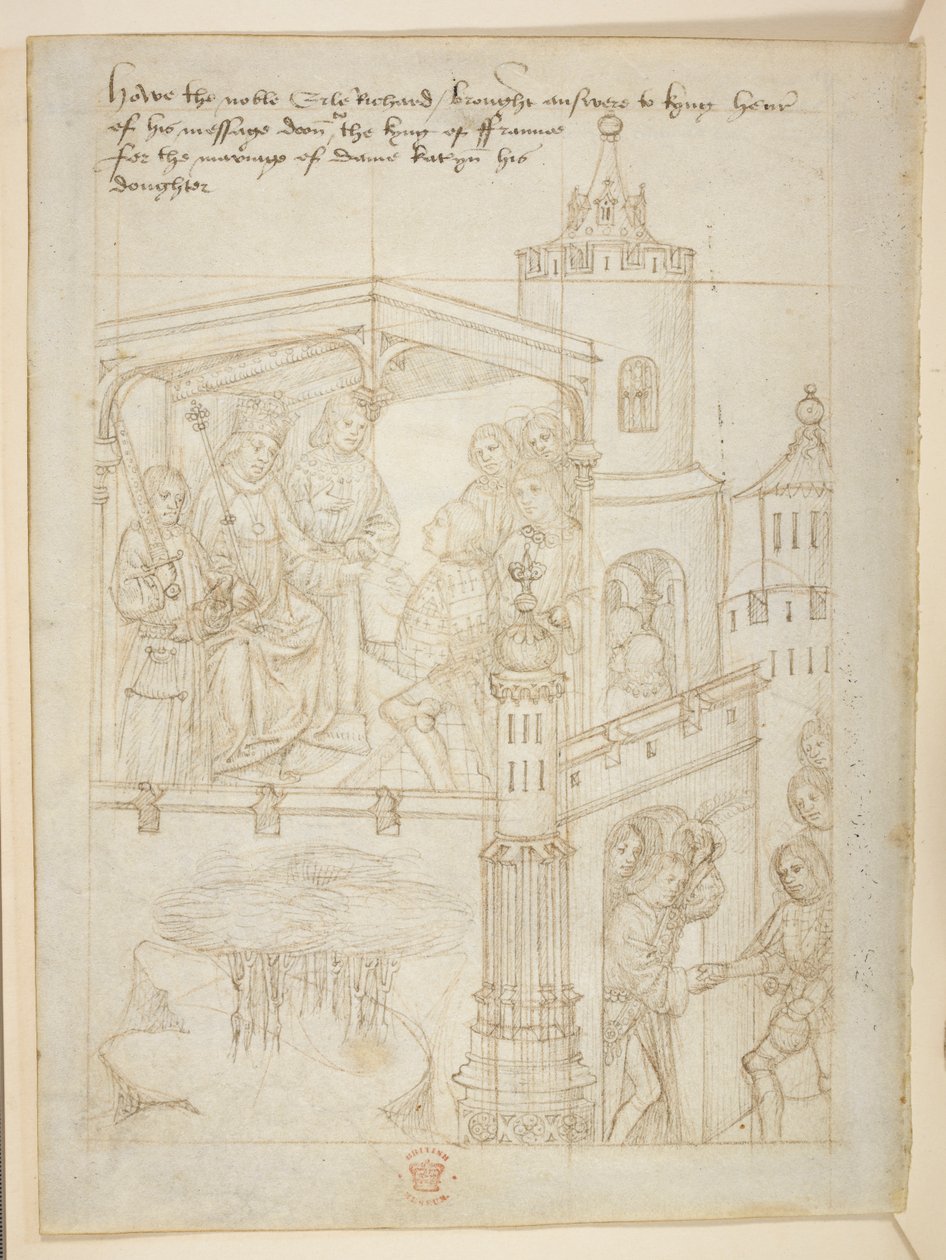 Howe the noble Erle Richard / brought answere to kyng Henr
of his message doon to the kyng of ffraunce
for the mariage of dame kateryn his
doughter
BRITISH
MUSEUM